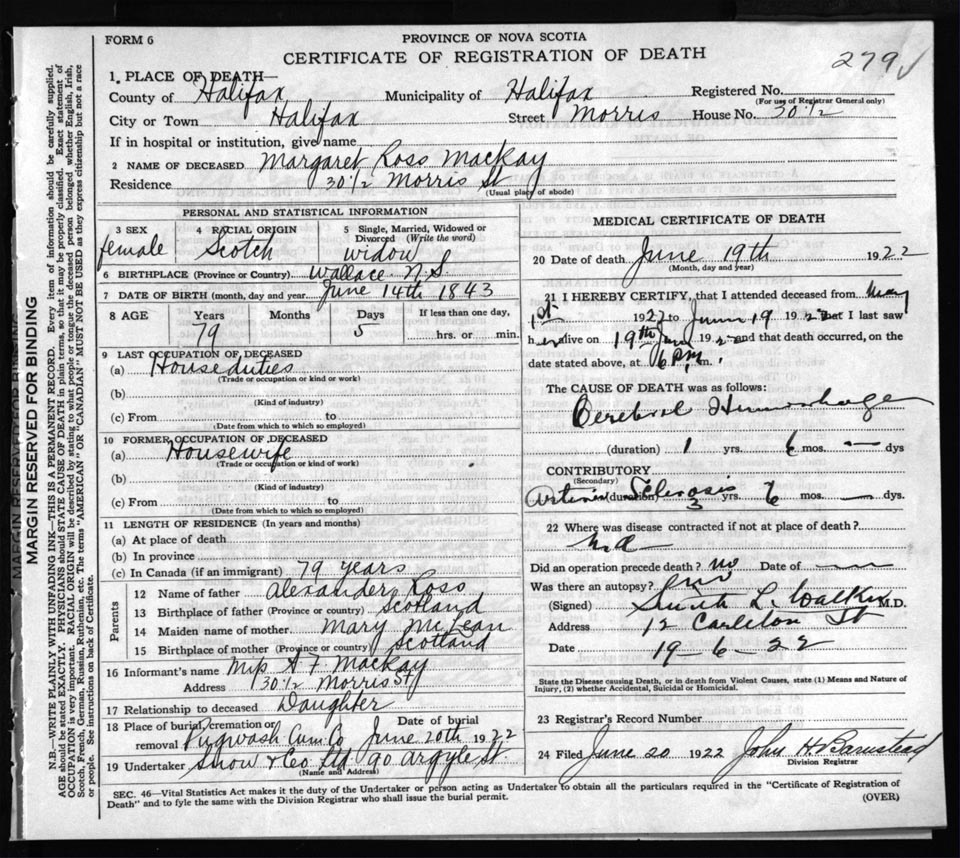 FORM 6
PROVINCE OF NOVA SCOTIA
CERTIFICATE OF REGISTRATION OF DEATH
279
1. PLACE OF DEATH—
County of Halifax Municipality of Halifax Registered No.
(For use of Registrar General only)
City or Town Halifax Street Morris House No. 30 1/2
If in hospital or institution, give name
2 NAME OF DECEASED Margaret Ross Mackay
Residence 30 1/2 Morris St
(Usual place of abode)
PERSONAL AND STATISTICAL INFORMATION
3 SEX female
4 RACIAL ORIGIN Scotch
5 Single, Married, Widowed or Divorced (Write the word) widow
6 BIRTHPLACE (Province or Country) Wallace N.S.
7 DATE OF BIRTH (month, day and year) June 14th 1843
8 AGE Years Months Days If less than one day,
79 5 hrs. or min.
9 LAST OCCUPATION OF DECEASED
(a) Houseduties
(Trade or occupation or kind or work)
(b)
(Kind of industry)
(c) From to
(Date from which to which so employed)
10 FORMER OCCUPATION OF DECEASED
(a) Housewife
(Trade or occupation or kind of work)
(b)
(Kind of industry)
(c) From to
(Date from which to which so employed)
11 LENGTH OF RESIDENCE (In years and months)
(a) At place of death
(b) In province
(c) In Canada (if an immigrant) 79 years
Parents
12 Name of father Alexander Ross
13 Birthplace of father (Province or country) Scotland
14 Maiden name of mother Mary McLean
15 Birthplace of mother (Province or country) Scotland
16 Informant's name A F Mackay
Address 30 1/2 Morris St
17 Relationship to deceased Daughter
18 Place of burial, cremation or removal Pugwash Cum. Co Date of burial June 20th 1922
19 Undertaker Snow & Co Ltd 90 Argyle St.
(Name and Address)
MEDICAL CERTIFICATE OF DEATH
20 Date of death June 19th 1922
(Month, day and year)
21 I HEREBY CERTIFY, that I attended deceased from May
1st 1922 to June 19 1922 that I last saw
her alive on 19th June 1922 and that death occurred, on the
date stated above, at 6 P.m.
The CAUSE OF DEATH was as follows:
Cerebral Hemorrhage
(duration) 1 yrs. 6 mos. — dys
CONTRIBUTORY
(Secondary)
Sclerosis
(duration) 3 yrs. 6 mos. — dys.
22 Where was disease contracted if not at place of death?
Did an operation precede death? no Date of —
Was there an autopsy? no
(Signed) Smith L. Walker M.D.
Address 12 Carleton St
Date 19-6-22
State the Disease causing Death, or in death from Violent Causes, state (1) Means and Nature of
Injury, (2) whether Accidental, Suicidal or Homicidal.
23 Registrar's Record Number
24 Filed June 20 1922 John H Barnstead
Division Registrar
SEC. 46—Vital Statistics Act makes it the duty of the Undertaker or person acting as Undertaker to obtain all the particulars required in the "Certificate of Registration of
Death" and to fyle the same with the Division Registrar who shall issue the burial permit.
(OVER)
MARGIN RESERVED FOR BINDING
N.B.—WRITE PLAINLY WITH UNFADING INK—THIS IS A PERMANENT RECORD. Every item of information should be carefully supplied.
AGE should be stated EXACTLY. PHYSICIANS should STATE CAUSE OF DEATH in plain terms, so that it may be properly classified. Exact statement of
OCCUPATION is very important. RACIAL ORIGIN will be described by stating to what people or tongue the deceased person belonged whether English, Irish,
Scotch, French, German, Russian, Ruthenian, etc. The terms "AMERICAN" OR "CANADIAN" MUST NOT BE USED as they express citizenship but not a race
or people. See instructions on back of Certificate.